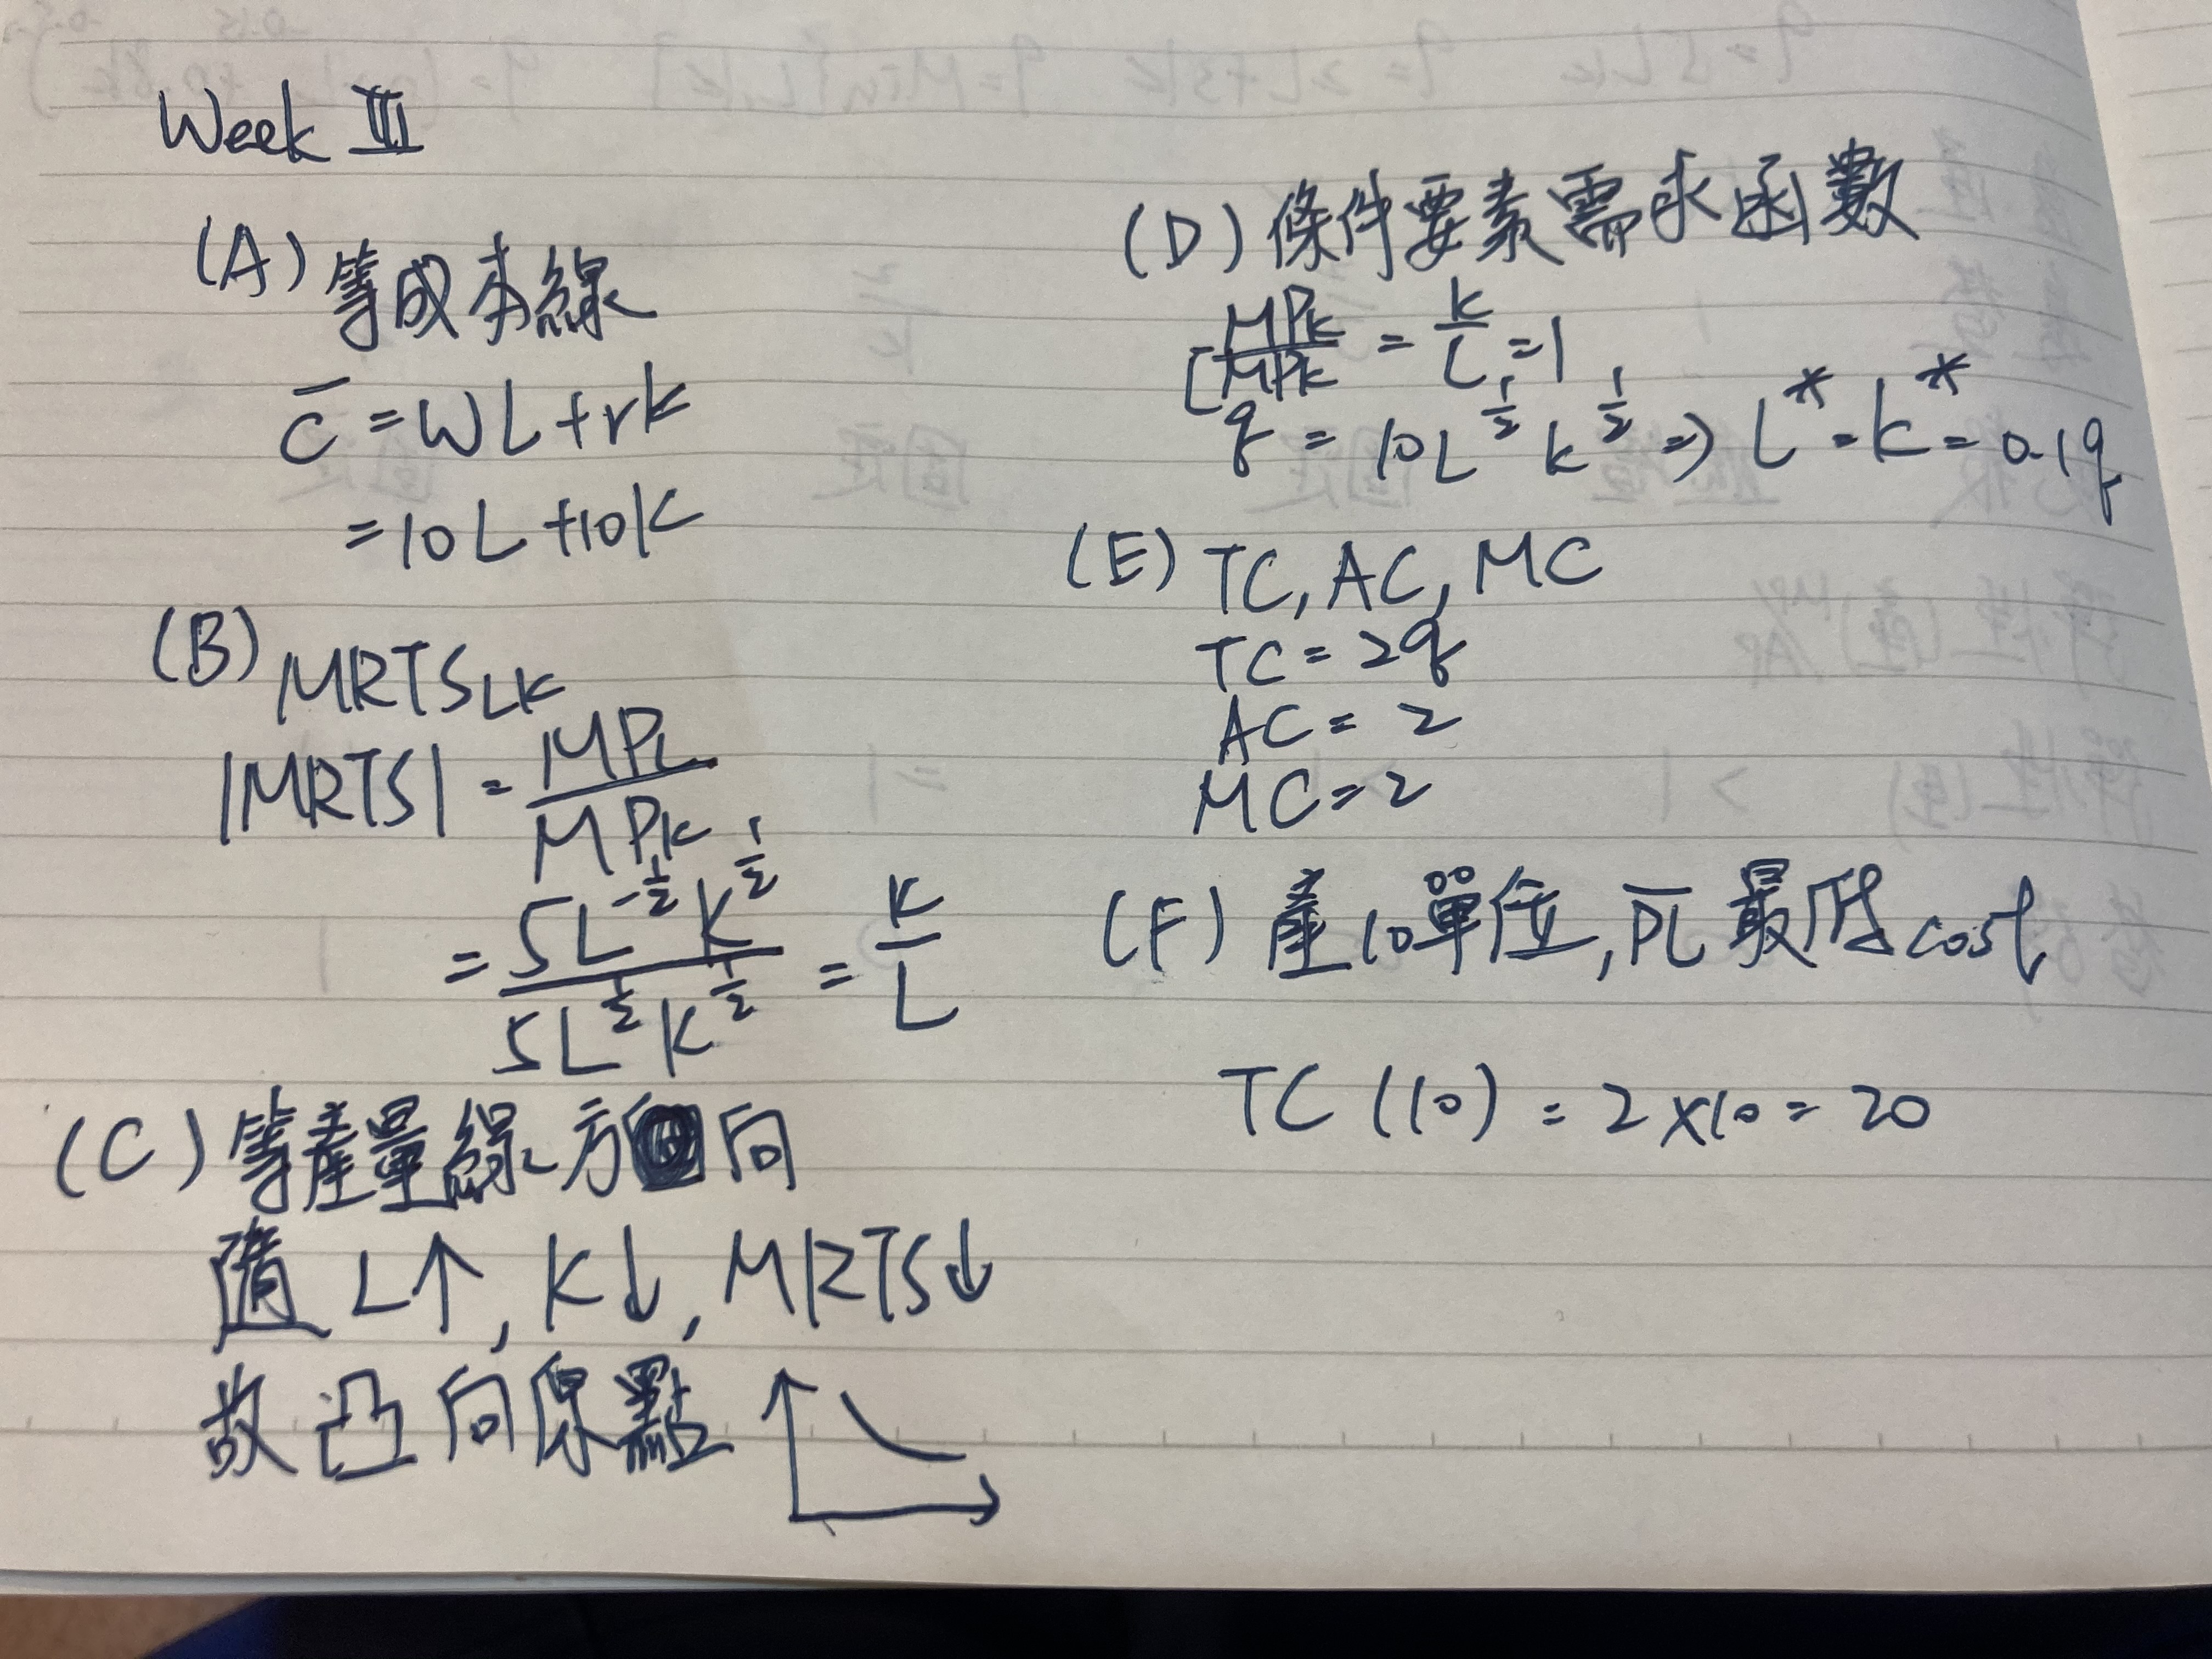 Week III
(A) 等成本線
c̄ = wL + rk
= 10L + 10K
(B) MRTS_LK
|MRTS| = MPL / MPK
= 5L^{-1/2} K^{1/2} / 5L^{1/2} K^{-1/2} = K / L
(C) 等產量線方向
隨 L↑, K↓, MRTS↓
故凸向原點
(D) 條件要素需求函數
MPK / MPK = k / L = 1
q = 10L^{1/2} k^{1/2} ⇒ L* = k* = 0.1q
(E) TC, AC, MC
TC = 2q
AC = 2
MC = 2
(F) 產10單位, 最低cost
TC (10) = 2 × 10 = 20